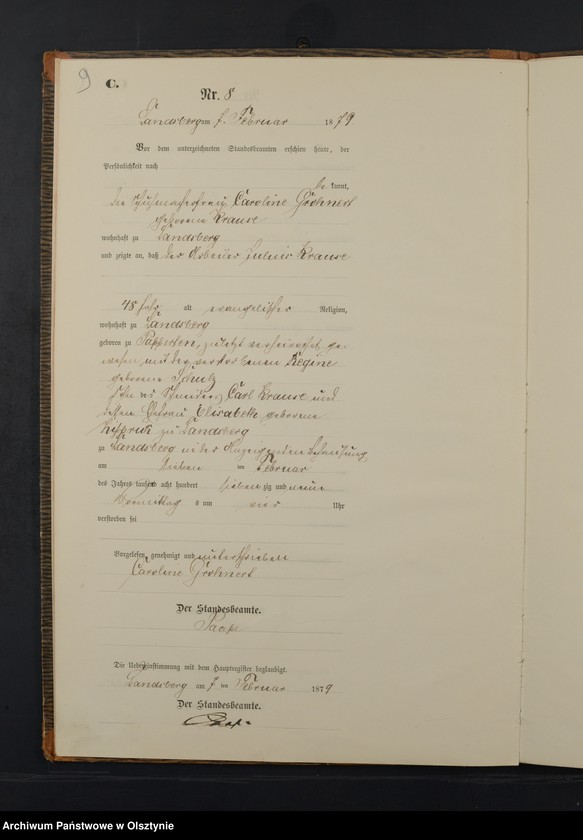 9
C.
Nr. 8
Landsberg am 7. Februar 1879
Vor dem unterzeichneten Standesbeamten erschien heute, der
Persönlichkeit nach
be kannt,
die Schuhmacherfrau Caroline Gröhnert
geborene Krause
wohnhaft zu Landsberg
und zeigte an, daß der Arbeiter Julius Krause
48 Jahr alt evangelischer Religion,
wohnhaft zu Landsberg
geboren zu Papperten, zuletzt verheirathet ge-
wesen mit der verstorbenen Regine
geborene Schulz
Sohn des Carl Krause und
dessen Ehefrau Elisabeth geborene
zu Landsberg
zu Landsberg in der Behausung
am sieben ten Februar
des Jahres tausend acht hundert sieben zig und neun
Vormittag s um vier Uhr
verstorben sei
Vorgelesen, genehmigt und unterschrieben
Caroline Gröhnert
Der Standesbeamte.
Paape
Die Uebereinstimmung mit dem Hauptregister beglaubigt.
Landsberg am 7 ten Februar 1879
Der Standesbeamte.
Paape
Archiwum Państwowe w Olsztynie